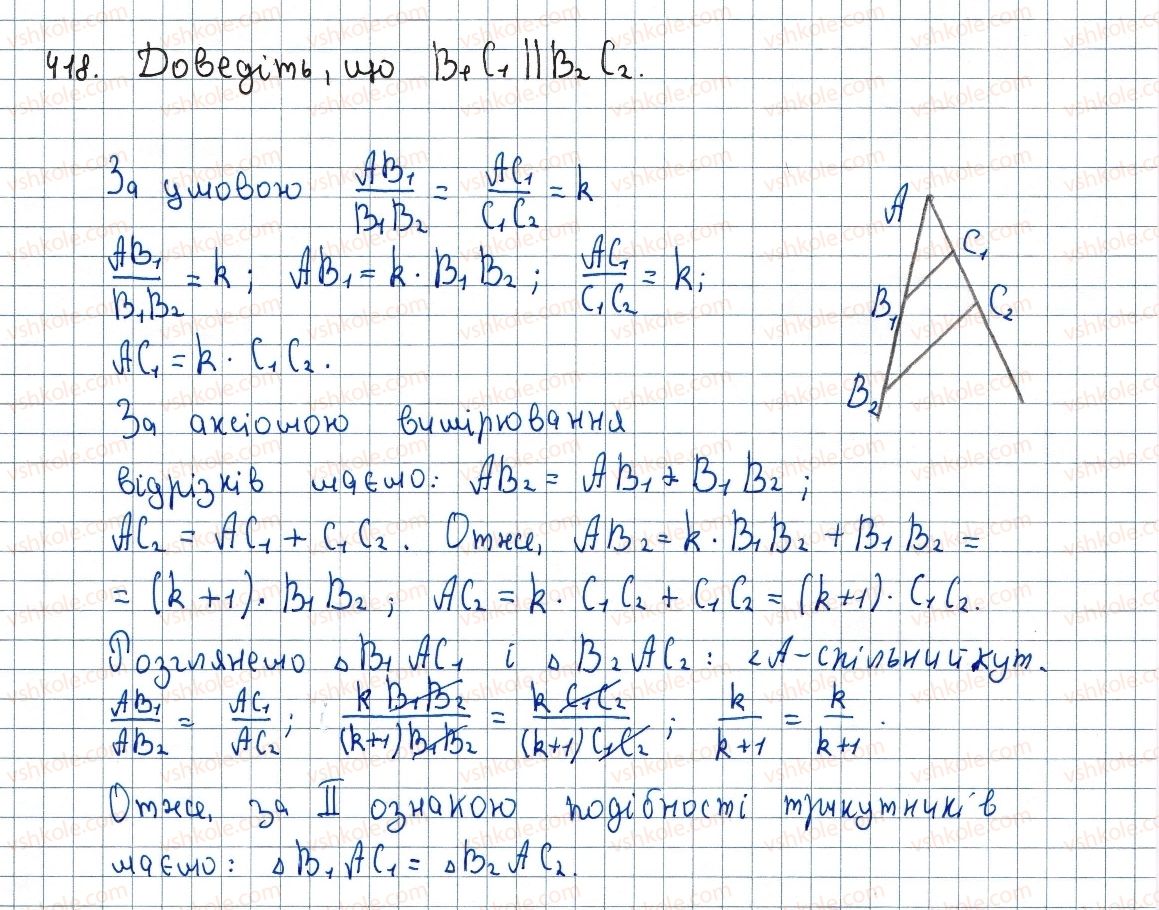 418. Доведіть, що B₁C₁ || B₂C₂.
За умовою AB₁/B₁B₂ = AC₁/C₁C₂ = k
AB₁/B₁B₂ = k; AB₁ = k · B₁B₂; AC₁/C₁C₂ = k;
AC₁ = k · C₁C₂.
За аксіомою вимірювання
відрізків маємо: AB₂ = AB₁ + B₁B₂;
AC₂ = AC₁ + C₁C₂. Отже, AB₂ = k · B₁B₂ + B₁B₂ =
= (k + 1) · B₁B₂; AC₂ = k · C₁C₂ + C₁C₂ = (k+1) · C₁C₂.
Розглянемо △B₁AC₁ і △B₂AC₂: ∠A – спільний кут.
AB₁/AB₂ = AC₁/AC₂; k B₁B₂/(k+1) B₁B₂ = k C₁C₂/(k+1) C₁C₂; k/k+1 = k/k+1.
Отже, за II ознакою подібності трикутників
маємо: △B₁AC₁ = △B₂AC₂.
A
C₁
B₁
C₂
B₂